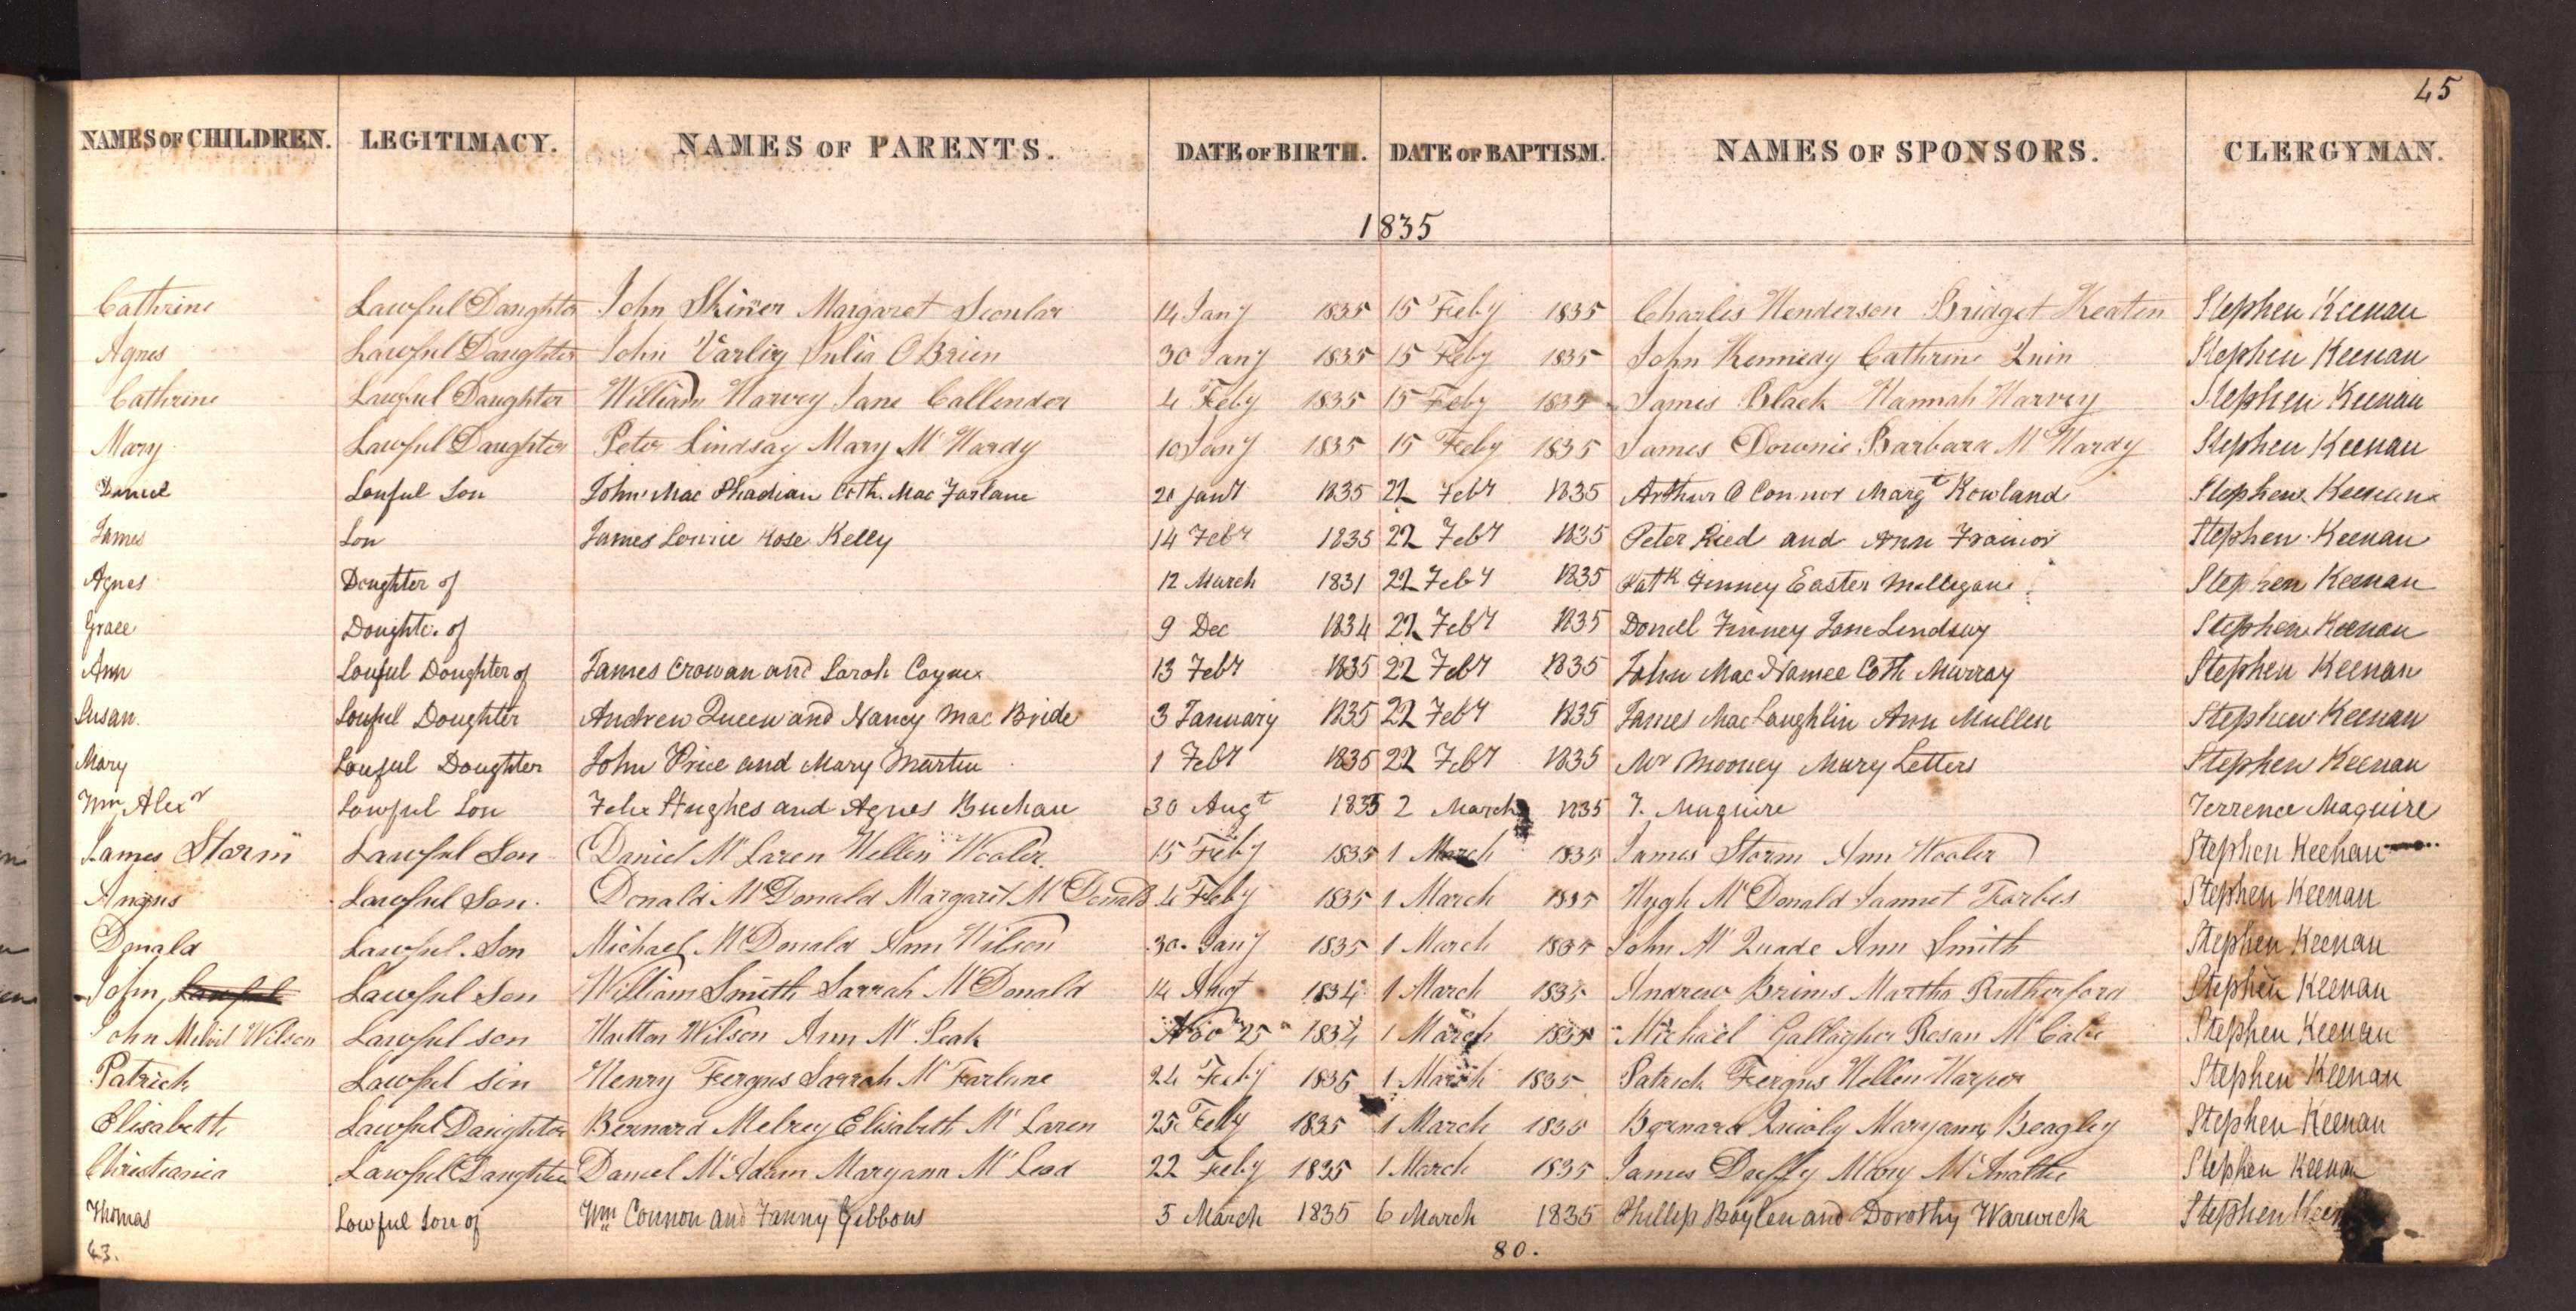 45
NAMES OF CHILDREN. LEGITIMACY. NAMES OF PARENTS. DATE OF BIRTH. DATE OF BAPTISM. NAMES OF SPONSORS. CLERGYMAN.
1835
Cathrine Lawful Daughter John Skiner Margaret Scoular 14 Jany 1835 15 Feby 1835 Charles Henderson Bridget Keaten Stephen Keenan
Agnes Lawful Daughter John Varley Julia O Brien 30 Jany 1835 15 Feby 1835 John Kennedy Cathrine Quin Stephen Keenan
Cathrine Lawful Daughter William Harvey Jane Callender 4 Feby 1835 15 Feby 1835 James Black Hannah Harvey Stephen Keenan
Mary Lawful Daughter Peter Lindsay Mary Mc Hardy 10 Jany 1835 15 Feby 1835 James Downie Barbara Mc Hardy Stephen Keenan
Daniel Lauful Son John Mac Phadian Cath. Mac Farlane 20 Jany 1835 22 Feby 1835 Arthur O Connor Margt Rowland Stephen Keenan
James Son James Lowrie Rose Kelly 14 Feby 1835 22 Feby 1835 Peter Ried and Ann Frainor Stephen Keenan
Agnes Doughter of 12 March 1831 22 Feby 1835 Patk Finney Easter Milligan Stephen Keenan
Grace Doughter of 9 Dec 1834 22 Feby 1835 Donell Finney Jane Lindsay Stephen Keenan
Ann Louful Doughter of James Crowan and Sarah Coyne 13 Feby 1835 22 Feby 1835 John Mac Namee Cath Murray Stephen Keenan
Susan Louful Doughter Andrew Queen and Nancy Mac Bride 3 January 1835 22 Feby 1835 James Mac Laughlin Ann Mullen Stephen Keenan
Mary Louful Doughter John Price and Mary Martin 1 Feby 1835 22 Feby 1835 Mr Mooney Mary Letters Stephen Keenan
Wm Alexr Lawful Son Felix Hughes and Agnes Buchan 30 Augt 1835 2 March 1835 T. Maguire Terrence Maguire
James Storm Lawful Son Daniel Mc Laren Hellen Wooler 15 Feby 1835 1 March 1835 James Storm Ann Wooler Stephen Keenan
Angus Lawful Son. Donald McDonald Margaret McDonald 4 Feby 1835 1 March 1835 Hugh McDonald Jannet Forbes Stephen Keenan
Donald Lawful Son Michael McDonald Ann Wilson 30 Jany 1835 1 March 1835 John Mc Quade Ann Smith Stephen Keenan
John Lawful Lawful Son William Smith Sarrah McDonald 14 Augt 1834 1 March 1835 Andrew Brims Martha Rutherford Stephen Keenan
John Melvil Wilson Lawful son Hutton Wilson Ann Mc Leak Nov 25 1834 1 March 1835 Michael Gallagher Rosan Mc Cabe Stephen Keenan
Patrick Lawful son Henry Fergus Sarrah Mc Farlane 24 Feby 1835 1 March 1835 Patrick Fergus Hellen Harper Stephen Keenan
Elisabeth Lawful Daughter Bernard Melrey Elisabeth Mc Laren 25 Feby 1835 1 March 1835 Bernard Maryann Beagley Stephen Keenan
Christiania Lawful Daughter Daniel McAdam Maryann Mc Leod 22 Feby 1835 1 March 1835 James Duffy Mary Stephen Keenan
Thomas Lowful Son of Wm Connon and Fanny Gibbons 5 March 1835 6 March 1835 Phillip Boylen and Dorothy Warwick Stephen
43. 80.